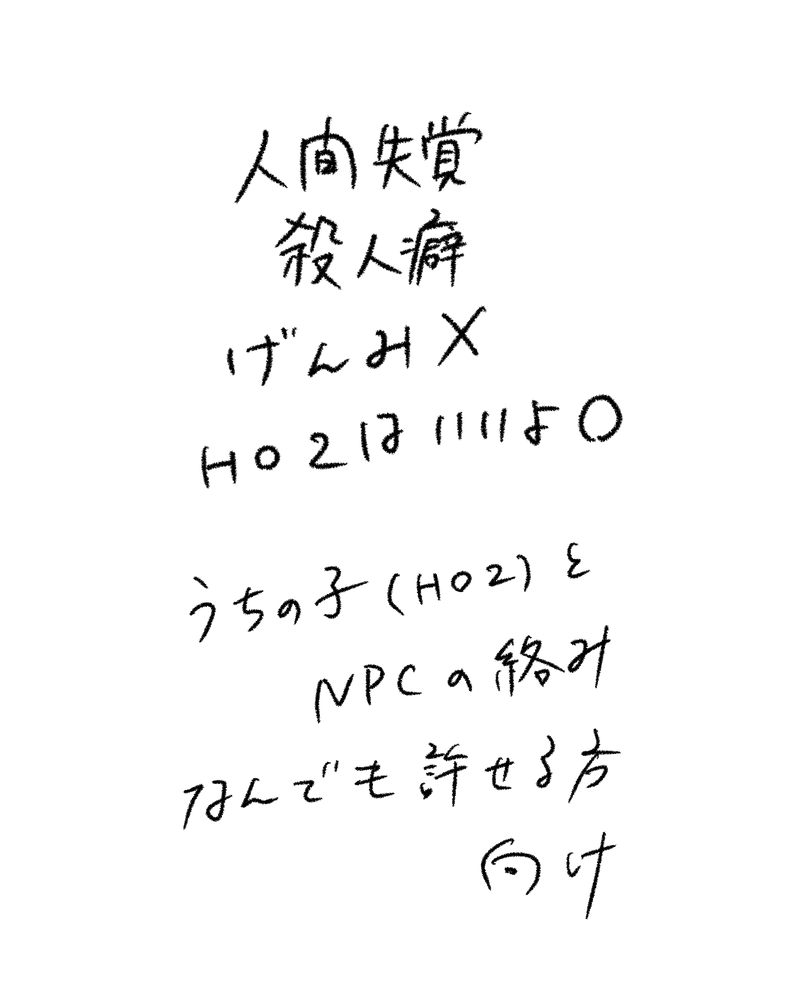 人間失覚
殺人癖
げんみ×
HO2はいいよ○
うちの子(HO2)と
NPCの絡み
なんでも許せる方
向け